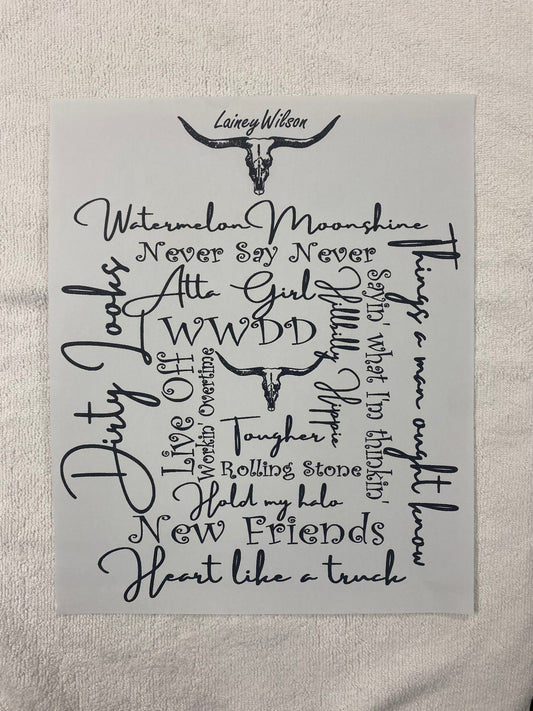 Lainey Wilson
Watermelon Moonshine
Never Say Never
Atta Girl
WWDD
Dirty Looks
Live Off
Workin' Overtime
Hillbilly Hippie
Sayin' what I'm thinkin'
Things a man ought know
Tougher
Rolling Stone
Hold my halo
New Friends
Heart like a truck